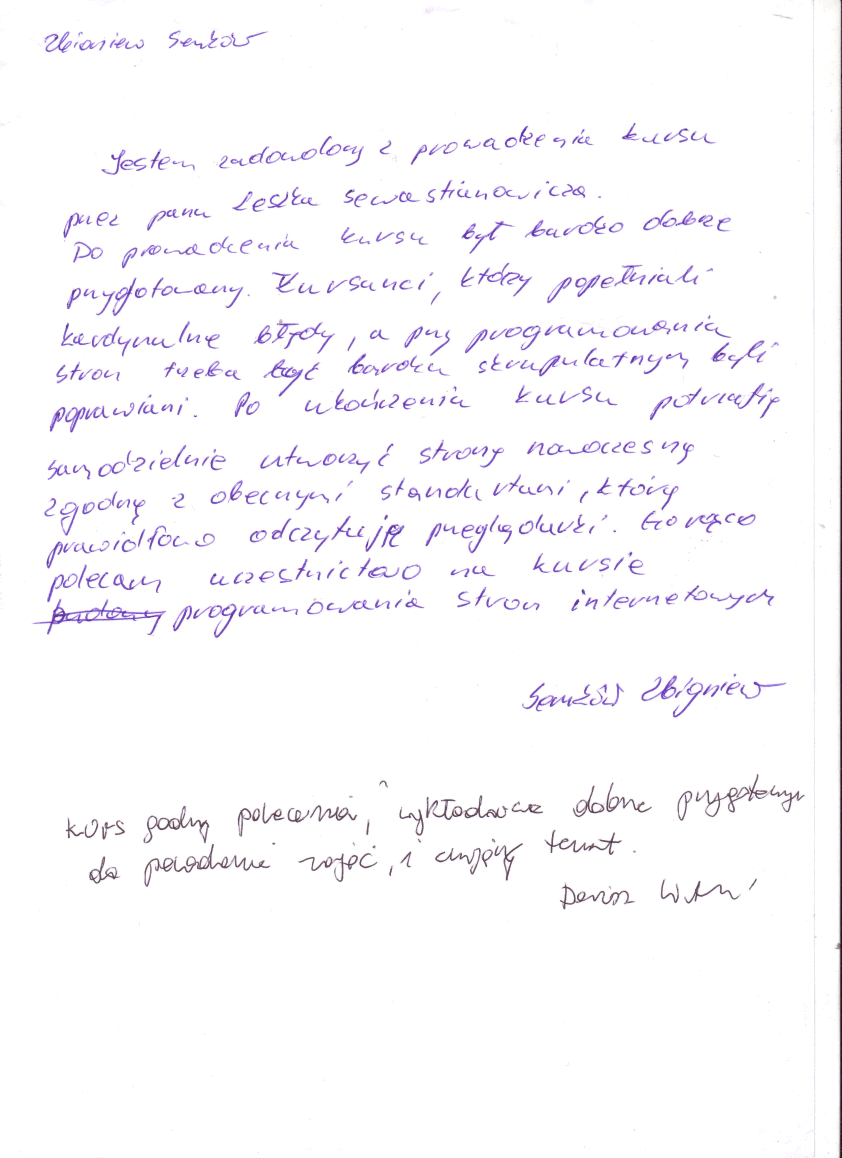 Zbigniew Seńków
Jestem zadowolony z prowadzenia kursu
przez pana Leszka Sewastianowicza.
Do prowadzenia kursu był bardzo dobrze
przygotowany. Kursanci, którzy popełniali
kardynalne błędy, a przy programowania
stron trzeba być bardzo skrupulatnym byli
poprawiani. Po ukończenia kursu potrafię
samodzielnie utworzyć stronę nowoczesną
zgodną z obecnymi standartami, którą
prawidłowo odczytują przeglądarki. Gorąco
polecam uczestnictwo na kursie
programowania stron internetowych
Zbigniew
Kurs godny polecenia, wykładowca dobrze przygotowany
do prowadzenie zajęć, i znający temat.